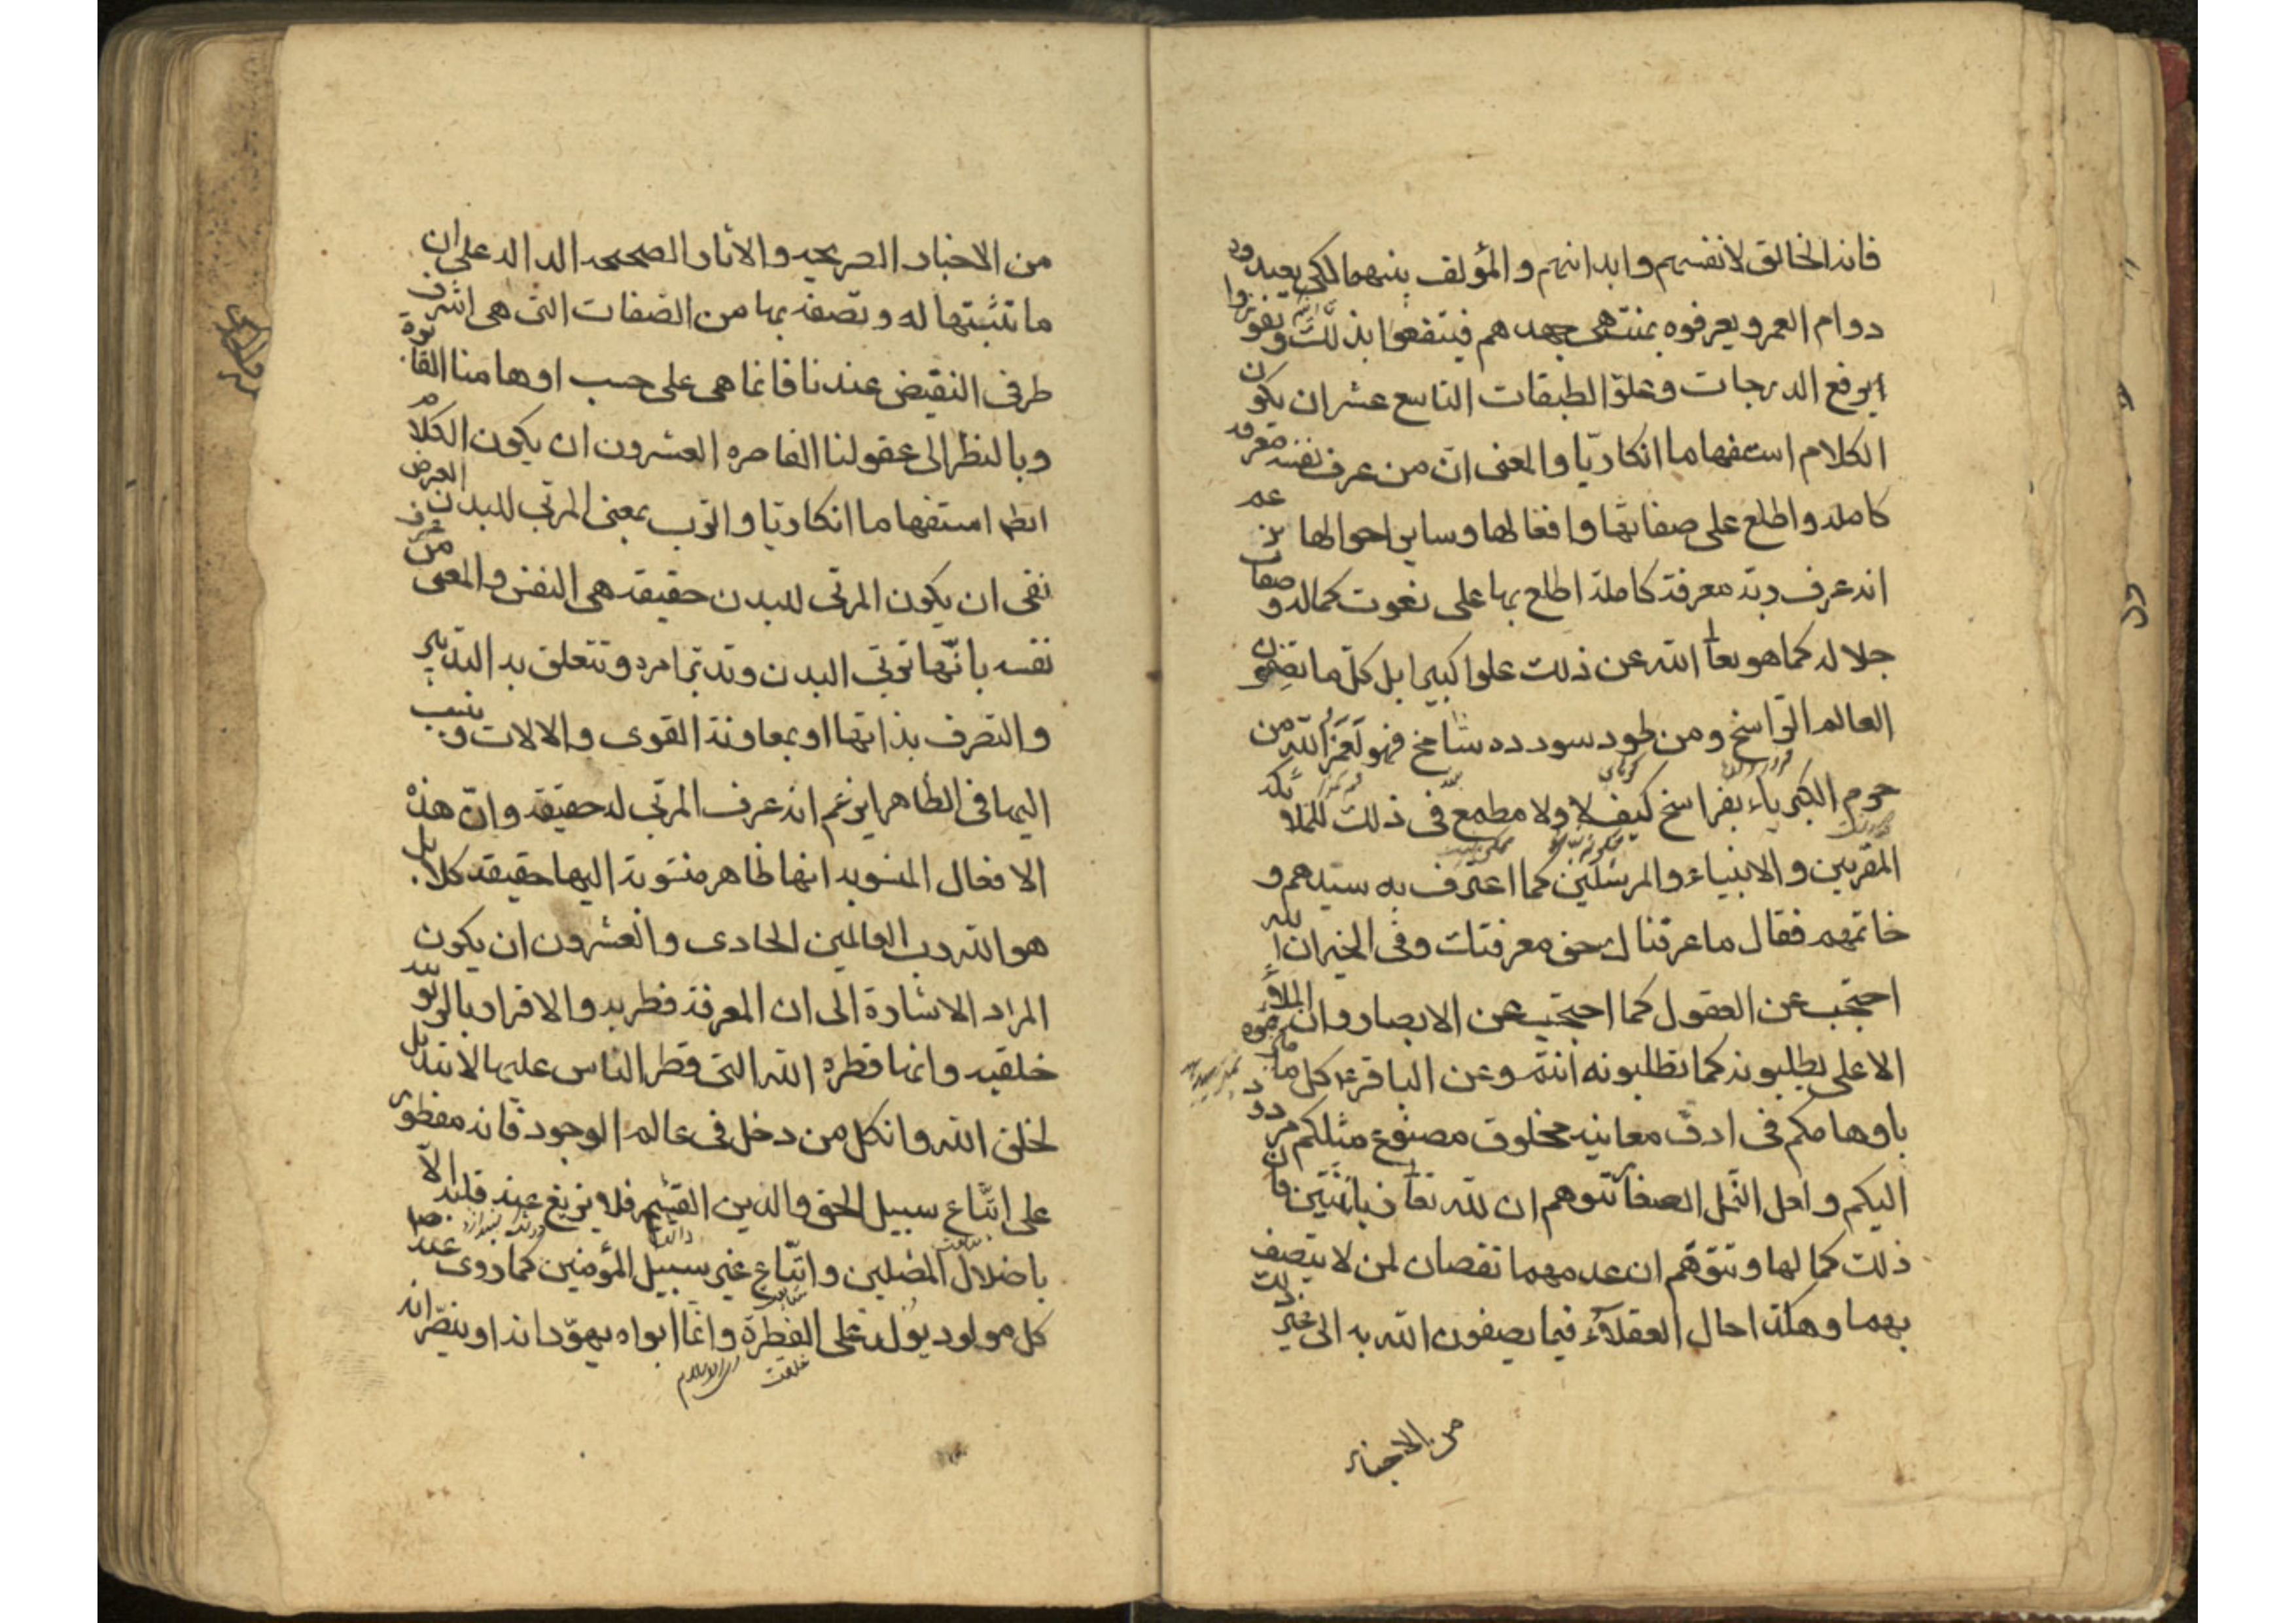 فانه الخالق لانفسهم وابدانهم والمؤلف بينهما لكى يعبدوه
دوام العمر ويعرفوه بمنتهى جهدهم فينتفعوا بذلك ويفوزوا
برفع الدرجات وعلوّ الطبقات التاسع عشر ان يكون
الكلام استفهاما انكاريّا والمعنى انّ من عرف نفسه معرفة
كاملة واطلع على صفاتها وافعالها وساير احوالها
انه عرف ربّه معرفة كاملة اطلع بها على نعوت كماله وصفات
جلاله كما هو تعا الله عن ذلك علوا كبيرا بل كلّ ما
العالم الرّاسخ ومن طود سودده شامخ فهو لَعَمْرُ الله من
حرم الكبرياء بفراسخ كيف لا ولا مطمع فى ذلك للملائكة
المقربين والانبياء والمرسلين كما اعترف به سيّدهم و
خاتمهم فقال ما عرفناك حق معرفتك وفى الخبر ان الله
احتجب عن العقول كما احتجب عن الابصار وان الملأ
الاعلى يطلبونه كما تطلبونه انتم وعن الباقر ع كل ما ميّزتموه
باوهامكم فى ادقّ معانيه مخلوق مصنوع مثلكم مردود
اليكم ولعل النّمل الصغار تتوهم ان لله تعا زبانيتين فان
ذلك كمالها وتتوهّم ان عدمهما نقصان لمن لا يتصف
بهما وهكذا حال العقلاء فيما يصفون الله به الى غير ذلك
من الاخبار
من الاخبار الصريحه والاثار الصحيحه الداله على ان
ما تثبتها له وتصفه بها من الصفات التى هى اشرف
طرفى النقيض عندنا فانما هى على حسب اوهامنا
وبالنظر الى عقولنا القاصره العشرون ان يكون الكلام
ايضا استفهاما انكاريّا والرّب بمعنى المربّى للبدن الغرض
نفى ان يكون المربّى للبدن حقيقة هى النفس والمعنى من عرف
نفسه بانّها تربّى البدن وتدبّر امره وتتعلق به التدبير
والتصرف بذاتها او بمعاونة القوى والالات وينسب
اليها فى الظاهر ايزعم انه عرف المربّى له حقيقة وانّ هذه
الافعال المنسوبه اليها ظاهر منسوبة اليها حقيقة كلا بل
هو الله رب العالمين الحادى والعشرون ان يكون
المراد الاشارة الى ان المعرفة فطريه والاقرار بالربوبيّة
خلقيه وانها فطره الله التى فطر الناس عليها لا تبديل
لخلق الله وان كل من دخل فى عالم الوجود فانه مفطور
على اتّباع سبيل الحق والدين القيّم فلا يزيغ عنه قلبه الّا
باضلال المضلين واتّباع غير سبيل المؤمنين كما روى عنه ص
كل مولود يولد على الفطرة وانما ابواه يهوّدانه او ينصّرانه
خلقت
اى الاسلام